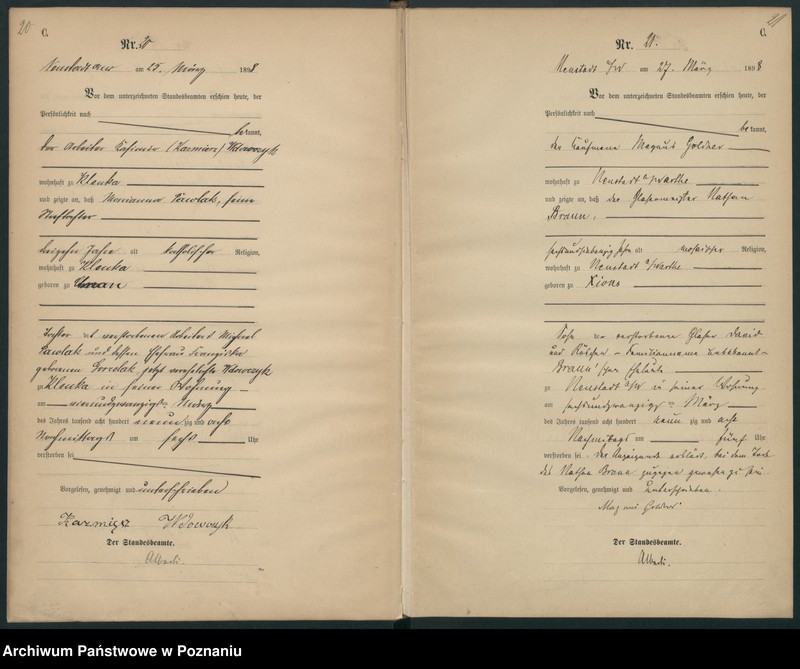 20
C.
Nr. 20
Neustadt a/W am 25. März 1898
Vor dem unterzeichneten Standesbeamten erschien heute, der
Persönlichkeit nach
bekannt,
der Arbeiter Kasimir (Kazmierz) Wdowczyk
wohnhaft zu Klenka
und zeigte an, daß Marianna Pawlak, seine
Stieftochter
Jahre alt katholischer Religion,
wohnhaft zu Klenka
geboren zu
Tochter des verstorbenen Arbeiters Michael
Pawlak und dessen Ehefrau Franziska
geborenen jetzt verehelichte Wdowczyk
zu Klenka in seiner Wohnung
am vierundzwanzigsten März
des Jahres tausend acht hundert neunzig und acht
Nachmittags um sechs Uhr
verstorben sei
Vorgelesen, genehmigt und unterschrieben
Kazmierz Wdowczyk
Der Standesbeamte.
21
C.
Nr. 21.
Neustadt a/W am 27. März 1898
Vor dem unterzeichneten Standesbeamten erschien heute, der
Persönlichkeit nach
bekannt,
der Kaufmann Magnus Goldner
wohnhaft zu Neustadt a/Warthe
und zeigte an, daß der Glasermeister Nathan
Braun,
alt mosaischer Religion,
wohnhaft zu Neustadt a/Warthe
geboren zu Xions
Sohn der verstorbenen Glaser David
und Röschen - Familienname unbekannt -
Braun'schen Eheleute
zu Neustadt a/W in seiner Wohnung
am sechsundzwanzigsten März
des Jahres tausend acht hundert neunzig und acht
Nachmittags um fünf Uhr
verstorben sei. Der Anzeigende erklärt, bei dem Tode
des Nathan Braun zugegen gewesen zu sein.
Vorgelesen, genehmigt und unterschrieben.
Magnus Goldner
Der Standesbeamte.
Archiwum Państwowe w Poznaniu